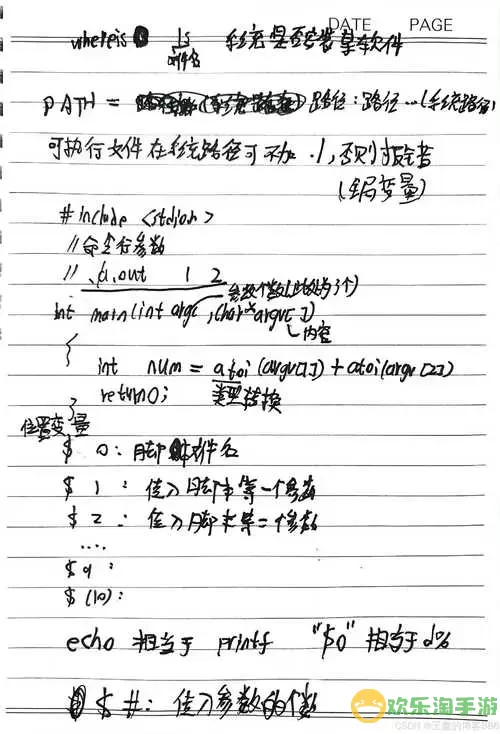 DATE PAGE
whereis ls 系统是否安装某软件
文件名
PATH = 路径:路径…(系统路径)
可执行文件在系统路径可不加 ./,否则报错
(全局变量)
#include <stdion>
//命令行参数
// ./a.out 1 2
参数个数(此处为3个)
int main(int argc, char* argv[])
内容
{
int num = atoi(argv[1]) + atoi(argv[2])
return 0; 类型转换
}
位置变量
$ 0: 脚本文件名
$ 1: 传入脚本第一个参数
$ 2: 传入脚本第二个参数
....
$ 9:
$ (10):
echo 相当于 printf "$0" 相当于 d%
$ #: 传入参数的个数
欢乐淘手游